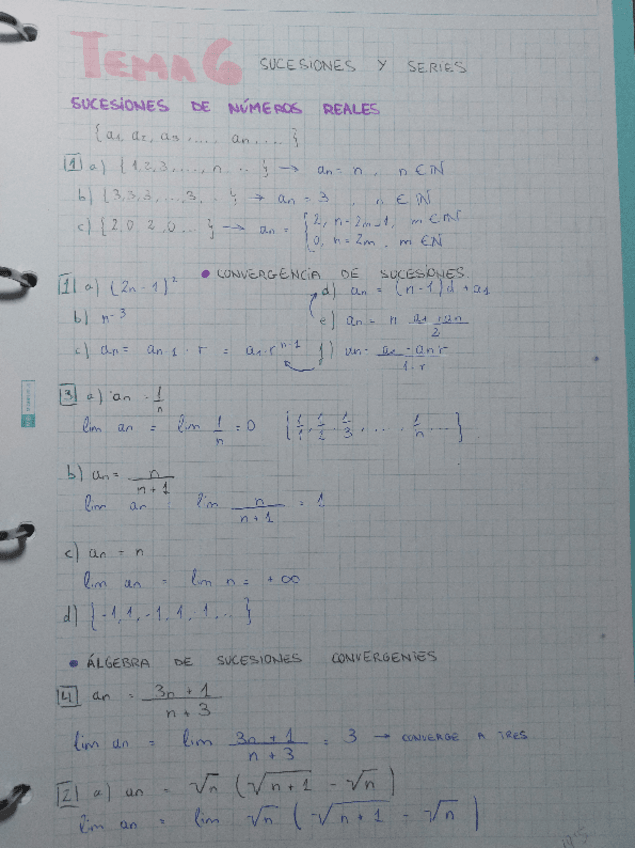 TEMA 6 SUCESIONES Y SERIES
SUCESIONES DE NÚMEROS REALES
{a1, a2, a3, ...., an .... }
1 a) {1, 2, 3, ...., n .. } → an = n, n ∈ ℕ
b) {3, 3, 3, ..., 3, .. } → an = 3, n ∈ ℕ
c) {2, 0, 2, 0 ... } → an = { 2, n = 2m-1, m ∈ ℕ
0, n = 2m, m ∈ ℕ
• CONVERGENCIA DE SUCESIONES
1 a) (2n - 1)²
d) an = (n-1)d + a1
b) n-3
e) an = n
c) an = an-1 · r = a1 · r^n-1
f)
3 a) an = 1/n
lim an = lim 1/n = 0 {1/1, 1/2, 1/3, ...., 1/n ... }
b) an = n/n+1
lim an lim n/n+1 = 1
c) an = n
lim an = lim n = +∞
d) {-1, 1, -1, 1, -1 ... }
• ÁLGEBRA DE SUCESIONES CONVERGENTES
4 an = 3n + 1/n + 3
lim an = lim 3n + 1/n + 3 = 3 → CONVERGE A TRES
2 a) an = √n (√n+1 - √n)
lim an = lim √n (√n+1 - √n)